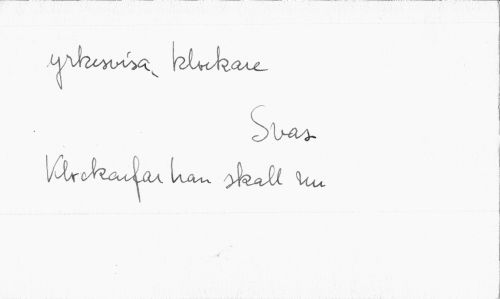 yrkesvisa, klockare
Svas
Klockarfar han skall nu